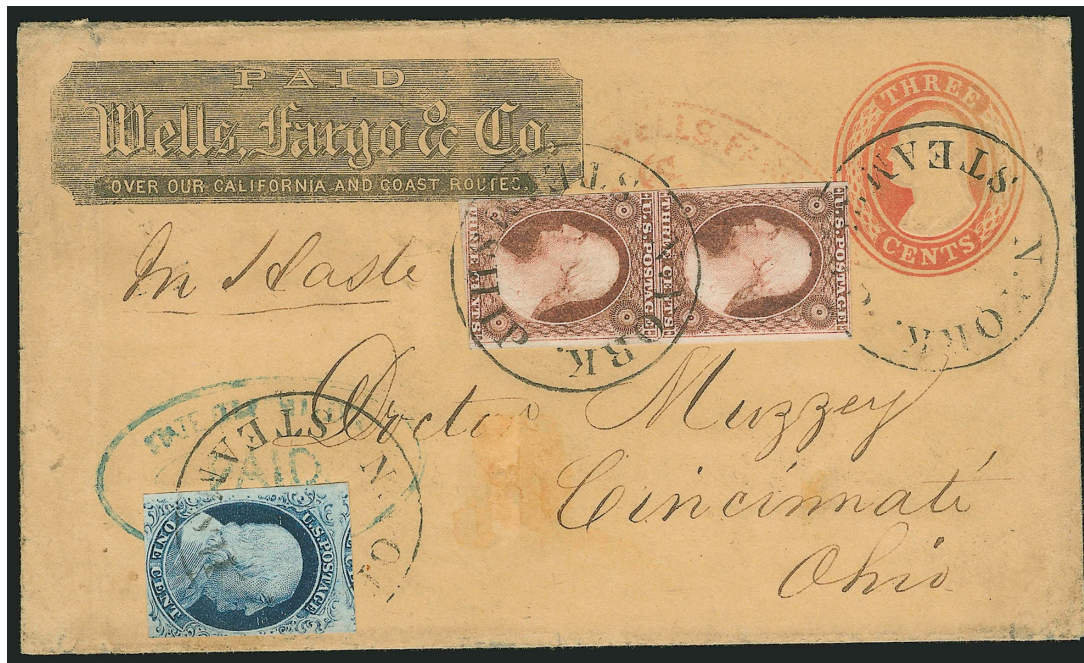 PAID
Wells, Fargo & Co.
OVER OUR CALIFORNIA AND COAST ROUTES.
THREE
CENTS
WELLS, F
STEAMSHIP
N. YORK.
STEAM
N. YORK.
U.S. POSTAGE
THREE CENTS
U.S. POSTAGE
In Haste
Doctor Muzzey
Cincinnati
Ohio
PAID
STEAM
N. YO
U.S. POSTAGE
ONE CENT